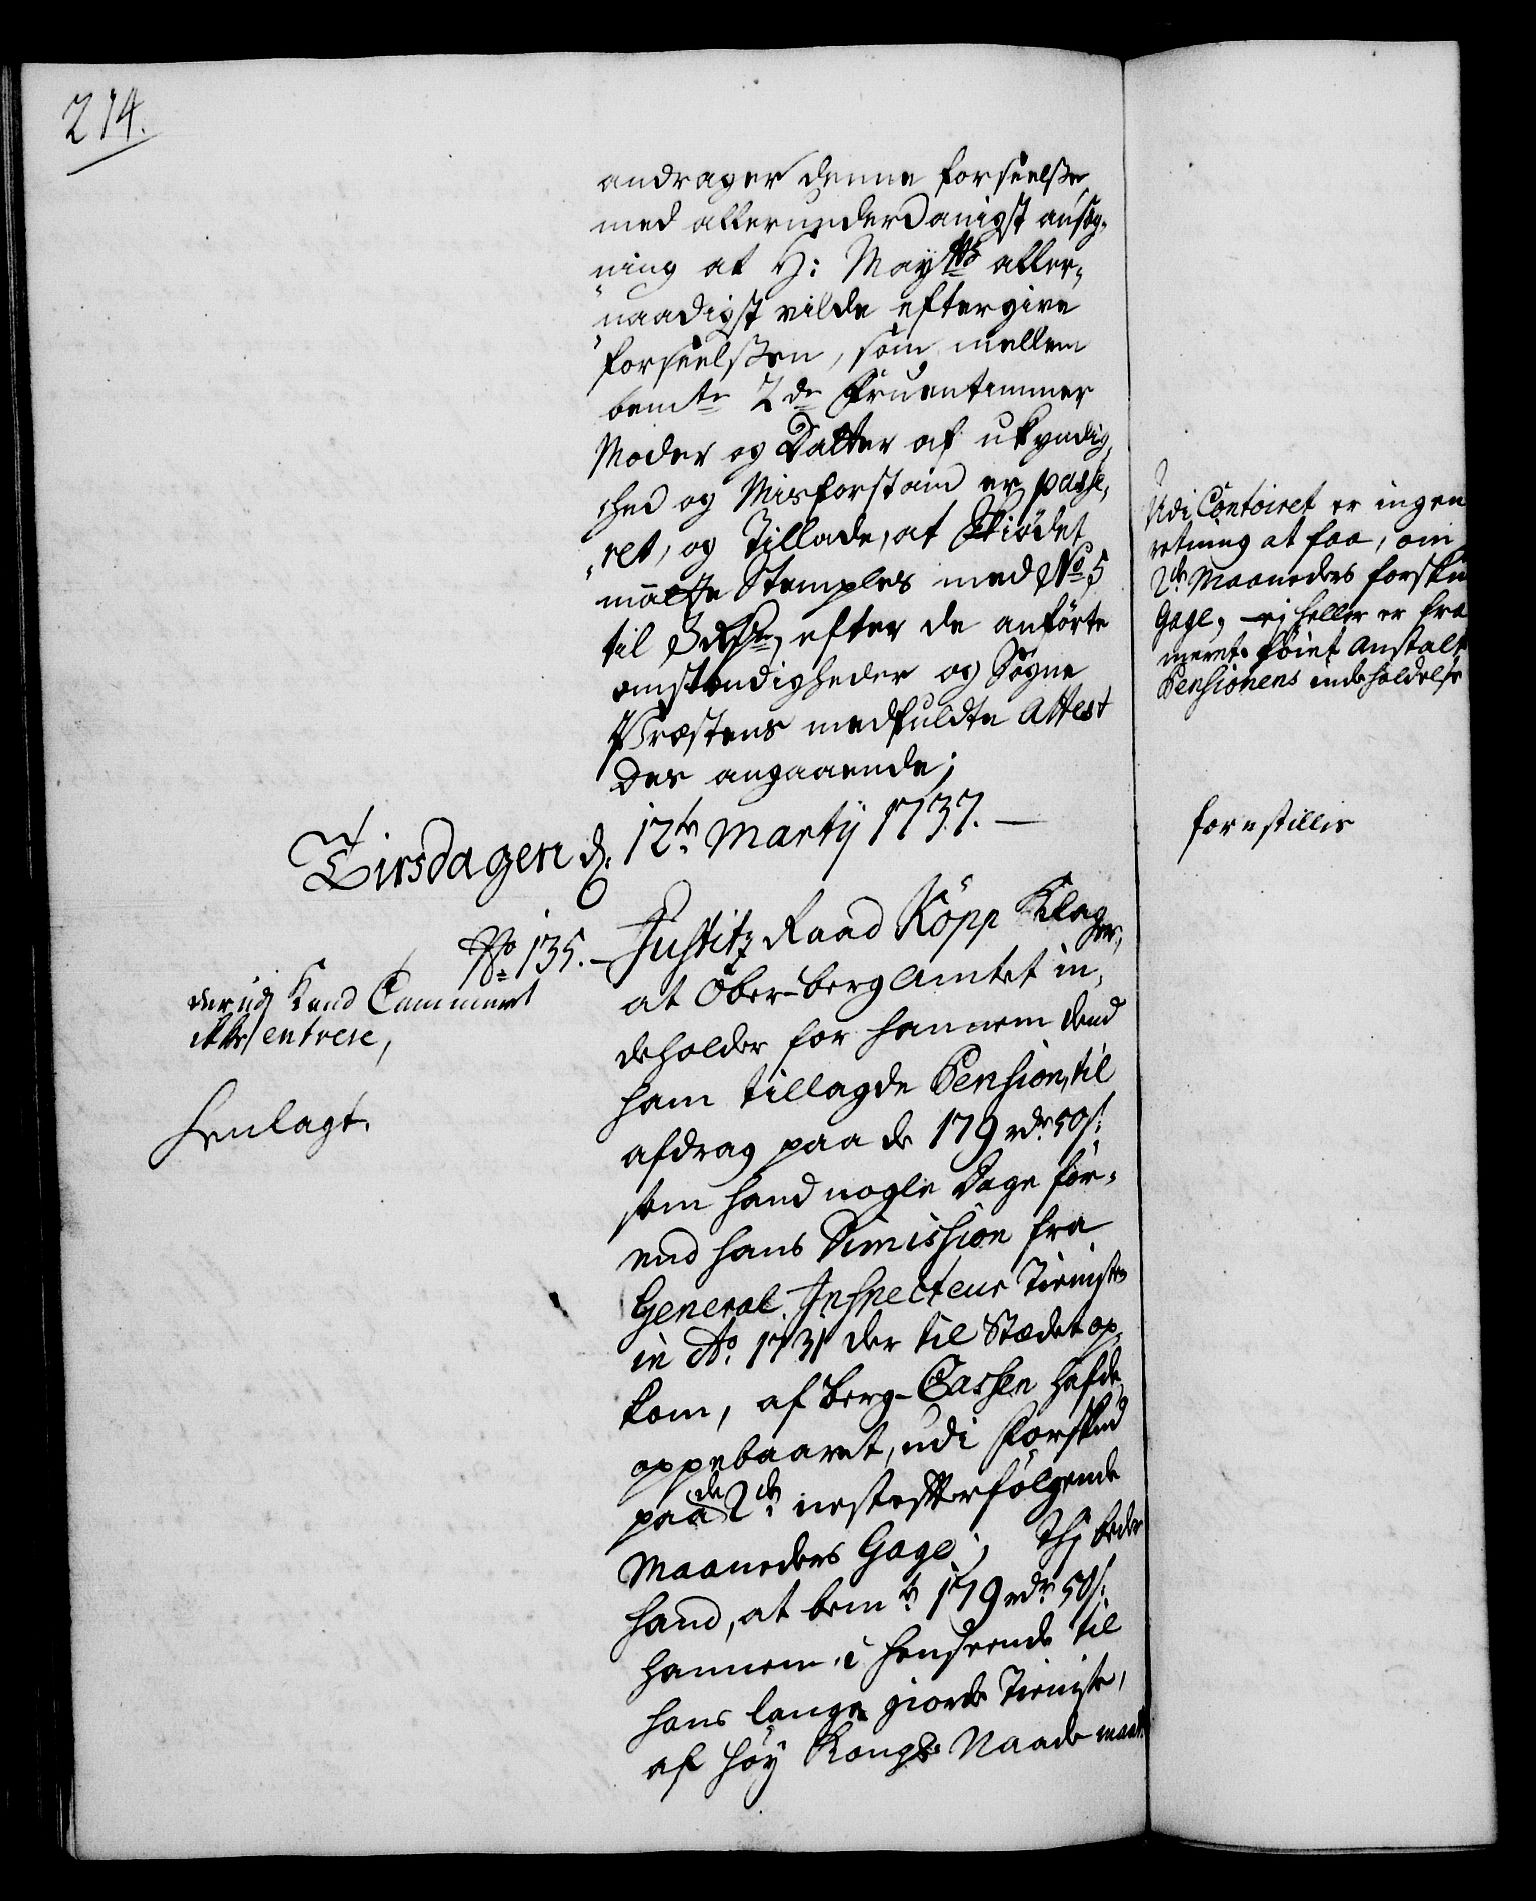 214.
andrager denne forseelse
med allerunderdanigst ansøg-
ning at H: Mayts aller-
naadigst vilde eftergive
forseelsen, som mellem
bemte 2de Fruentimmer
Moder og Datter af ukyndig-
hed og Misforstand er passe-
ret, og Tillade, at Skiødet
maatte Stemples med No 5
til 3 Rdr, efter de anførte
omstendigheder og Sogne
Præstens medfulgte Attest
des angaaende;
Tirsdagen d. 12te Martij 1737.
No 135. Justitz Raad Köpp Klager,
at Ober-bergAmtet in-
deholder for hannem dend
ham tillagde Pension, til
afdrag paa de 179 rdr 50 s:
som hand nogle Dage før-
end hans Dimission fra
General Inspecteur Tieniste
in Ao. 1731 der til Stædet op-
kom, af Berg-Cassen hafde
oppebaaret, udi Forskud
paa de 2de nestefterfølgende
Maaneders Gage; Thj beder
hand, at bemte 179 rdr 50 s:
hannem i henseende til
hans lange giorde Tieniste,
af høy Kongl: Naade maat
derudj Kand Cammeret
ikke entrere,
henlagt.
Udi Contoiret er ingen
retning at faa, om
2de Maaneders forsku
Gage, ej heller er fra
meret føiet Anstalt
Pensionens indeholdelse
forestillis